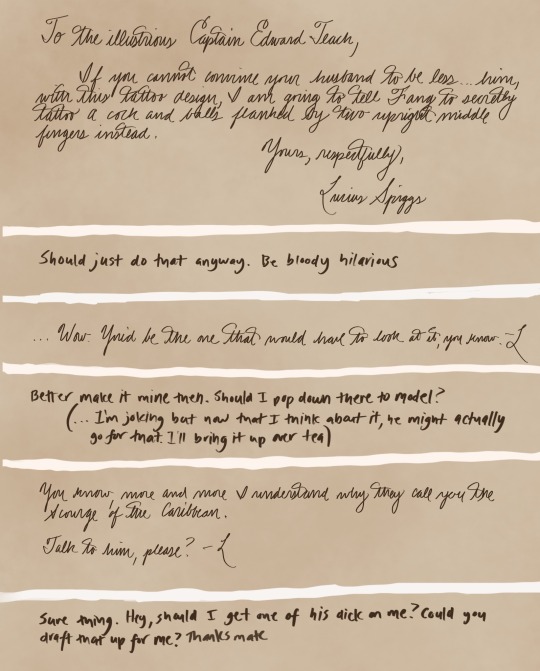 To the illustrious Captain Edward Teach,
If you cannot convince your husband to be less... him,
with this tattoo design, I am going to tell Fang to secretly
tattoo a cock and balls flanked by two upright middle
fingers instead.
Yours, respectfully,
Lucius Spriggs
Should just do that anyway. Be bloody hilarious
... Wow. You'd be the one that would have to look at it, you know. -L
Better make it mine then. Should I pop down there to model?
(... I'm joking but now that I think about it, he might actually
go for that. I'll bring it up over tea)
You know, more and more I understand why they call you the
Scourge of the Caribbean.
Talk to him, please? -L
Sure thing. Hey, should I get one of his dick on me? Could you
draft that up for me? Thanks mate